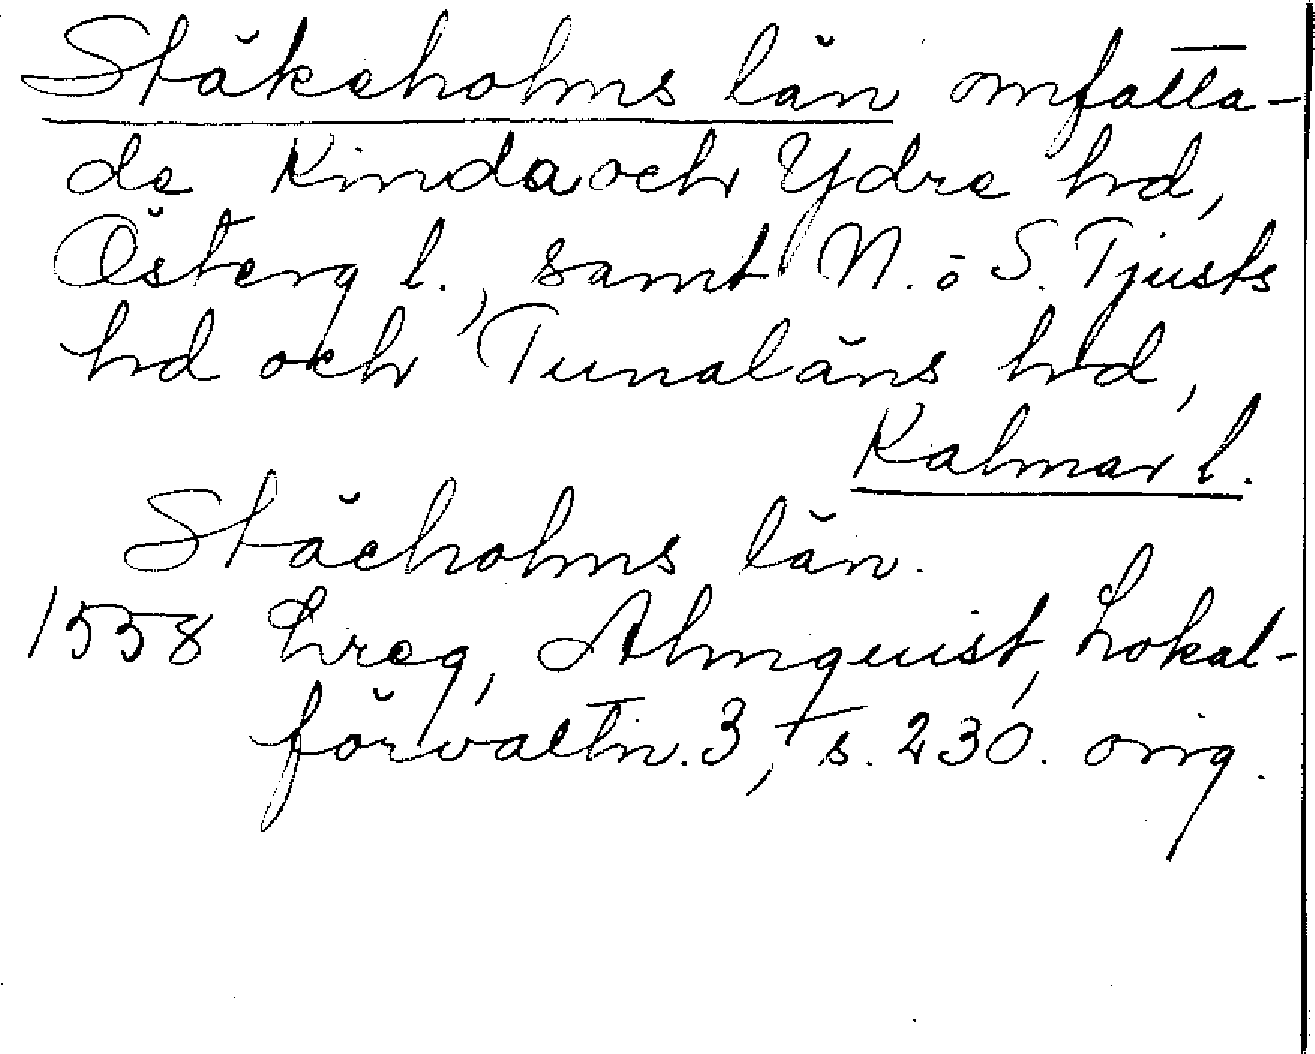 Stäkeholms län omfatta-
de Kinda och Ydre hd,
Österg l., samt N. o S. Tjusts
hd och Tunaläns hd,
Kalmar l.
Stächolms län.
1558 Lreg, Almquist, Lokal-
förvaltn. 3, s. 230. orig.